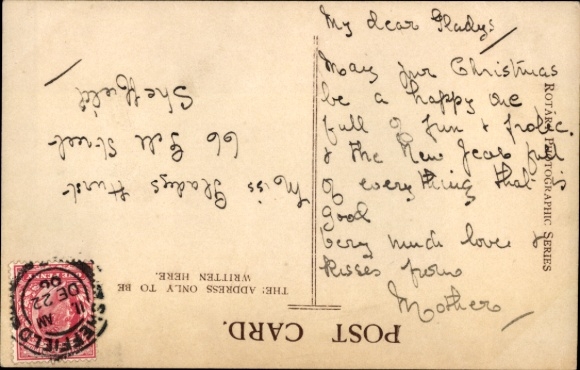 My dear Gladys
May your Christmas
be a happy one
full of fun & frolic.
& the New Year full
of everything that is
good
very much love &
kisses from
Mother
POST CARD.
THE ADDRESS ONLY TO BE
WRITTEN HERE.
Miss Gladys Hurst
66 Gell Street
Sheffield
ROTARY PHOTOGRAPHIC SERIES
SHEFFIELD
11 AM
DE 22